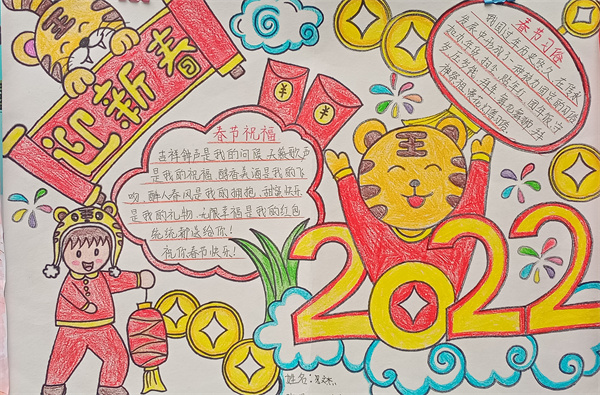 迎新春
春节祝福
吉祥钟声是我的问候 天籁歌声
是我的祝福 醇香美酒是我的飞
吻 醉人春风是我的拥抱 甜蜜快乐
是我的礼物 无限幸福是我的红包
统统都送给你!
祝你春节快乐!
春节习俗
我国过年历史悠久 在传承
发展中已形成了一些较为固定的风俗
习惯
岁 压岁钱 拜年
2022
王
姓名: